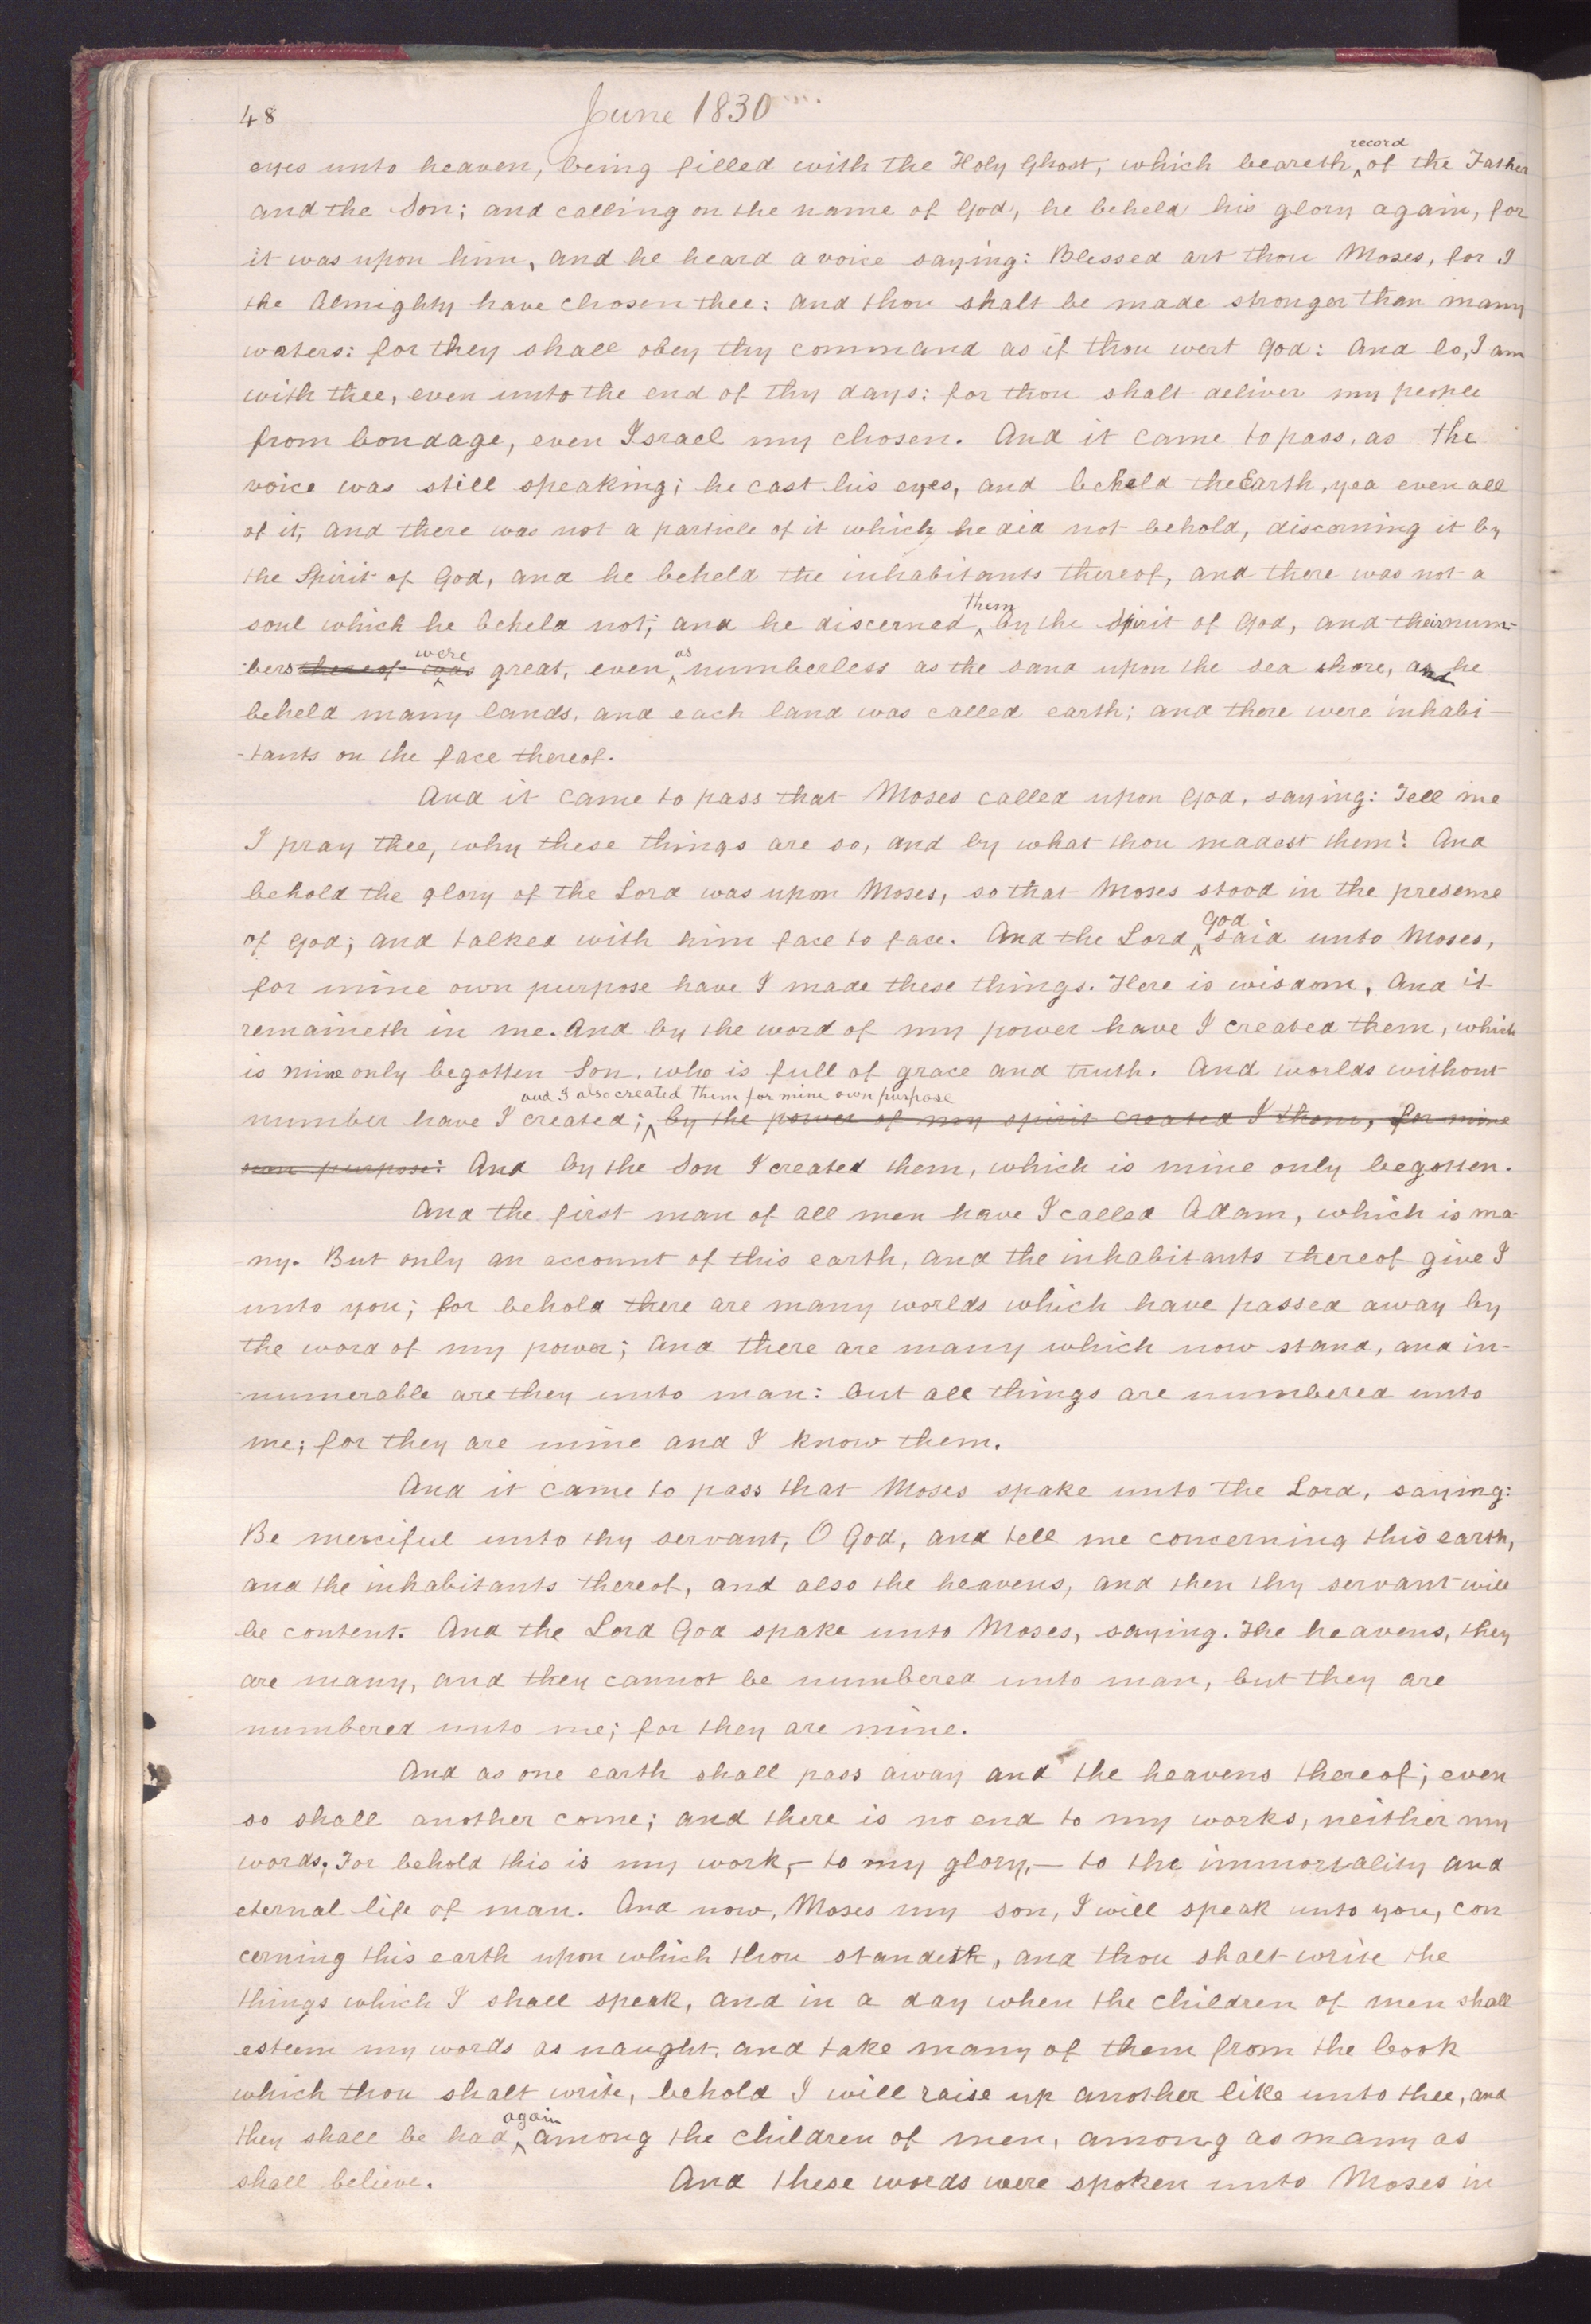 48 June 1830
eyes unto heaven, being filled with the Holy Ghost, which beareth record of the Father
and the Son; and calling on the name of God, he beheld his glory again, for
it was upon him, and he heard a voice saying: Blessed art thou Moses, for I
the Almighty have chosen thee: and thou shalt be made stronger than many
waters: for they shall obey thy command as if thou wert God: And lo, I am
with thee, even unto the end of thy days: for thou shalt deliver my people
from bondage, even Israel my chosen. And it came to pass, as the
voice was still speaking; he cast his eyes, and beheld the Earth, yea even all
of it, and there was not a particle of it which he did not behold, discerning it by
the Spirit of God, and he beheld the inhabitants thereof, and there was not a
soul which he beheld not; and he discerned them by the Spirit of God, and their num-
-bers thereof was were great, even as numberless as the sand upon the sea shore, and he
beheld many lands, and each land was called earth; and there were inhabi-
-tants on the face thereof.
And it came to pass that Moses called upon God, saying: Tell me
I pray thee, why these things are so, and by what thou madest them? And
behold the glory of the Lord was upon Moses, so that Moses stood in the presence
of God; and talked with him face to face. And the Lord God said unto Moses,
for mine own purpose have I made these things. Here is wisdom, And it
remaineth in me. And by the word of my power have I created them, which
is mine only begotten Son, who is full of grace and truth. And worlds without
number have I created; and I also created them for mine own purpose by the power of my spirit created I them, for mine
own purpose: And by the Son I created them, which is mine only begotten.
And the first man of all men have I called Adam, which is ma-
-ny. But only an account of this earth, and the inhabitants thereof give I
unto you; for behold there are many worlds which have passed away by
the word of my power; And there are many which now stand, and in-
-numerable are they unto man: but all things are numbered unto
me; for they are mine and I know them.
And it came to pass that Moses spake unto the Lord, saying:
Be merciful unto thy servant, O God, and tell me concerning this earth,
and the inhabitants thereof, and also the heavens, and then thy servant will
be content. And the Lord God spake unto Moses, saying. The heavens, they
are many, and they cannot be numbered unto man, but they are
numbered unto me; for they are mine.
And as one earth shall pass away and the heavens thereof; even
so shall another come; and there is no end to my works, neither my
words, For behold this is my work,- to my glory,- to the immortality and
eternal life of man. And now, Moses my son, I will speak unto you, con
cerning this earth upon which thou standeth, and thou shalt write the
things which I shall speak, and in a day when the children of men shall
esteem my words as naught, and take many of them from the book
which thou shalt write, behold I will raise up another like unto thee, and
they shall be had again among the children of men, among as many as
shall believe. And these words were spoken unto Moses in